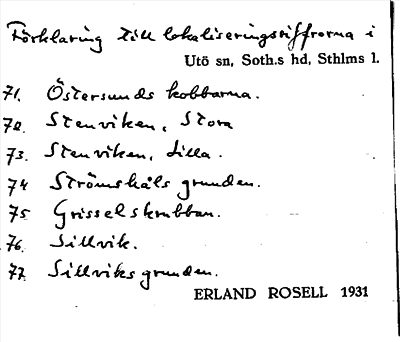 Förklaring till lokaliseringssiffrorna i
Utö sn, Soth.s hd, Sthlms l.
71. Östersunds kobbarna.
72. Stenviken, Stora
73. Stenviken, Lilla.
74 Strömskåls grunden.
75 Grisselskrubban.
76. Sillvik.
77. Sillviksgrunden.
ERLAND ROSELL 1931